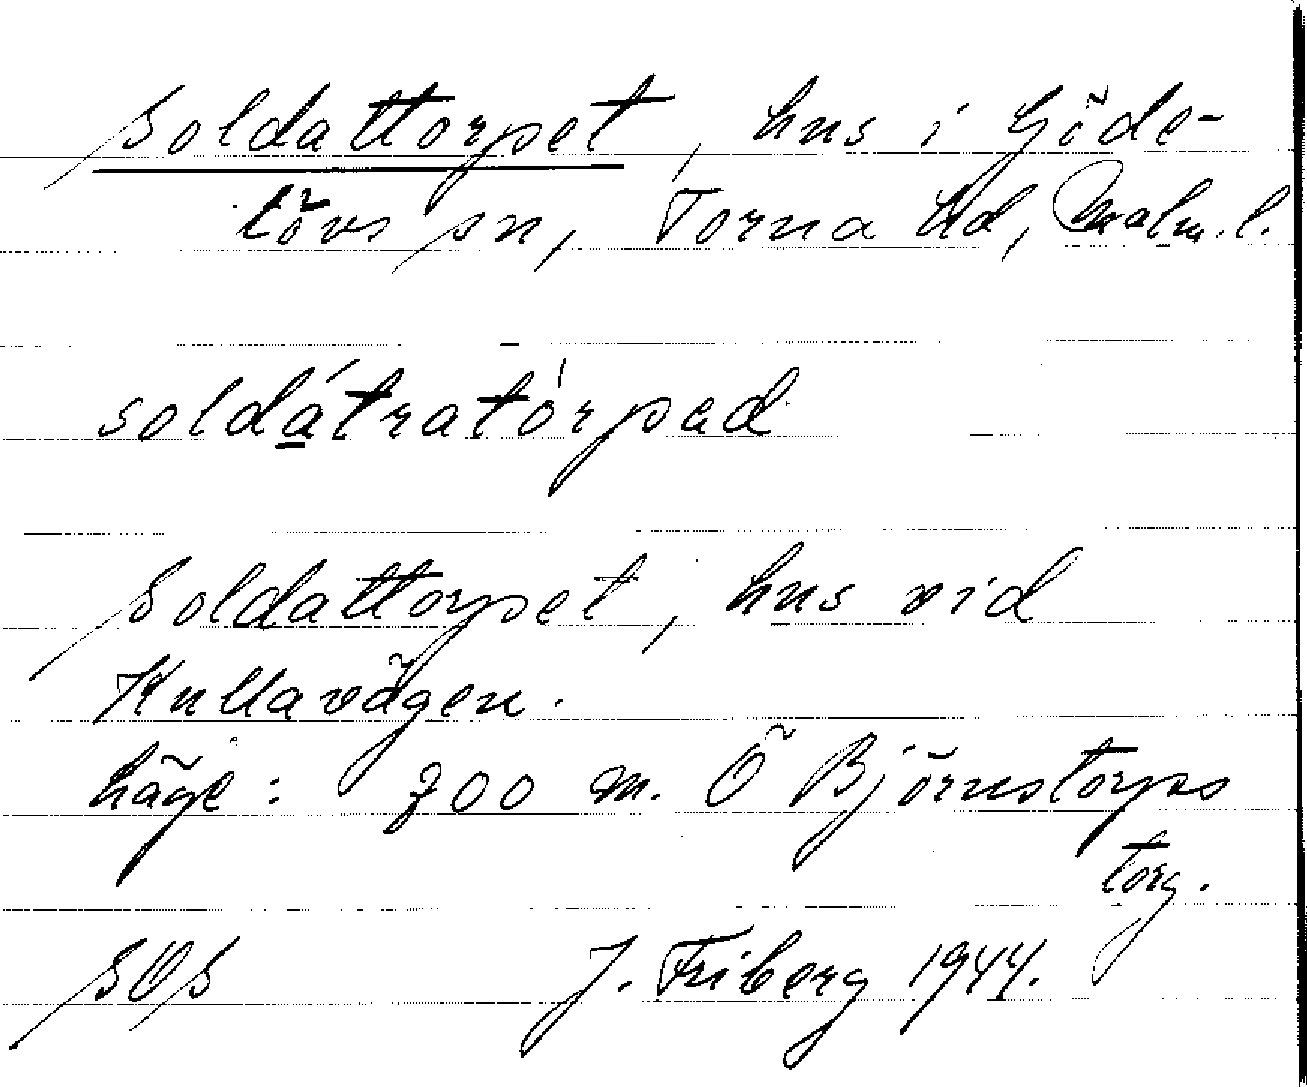 Soldattorpet, hus i Göde-
lövs sn, Torna hd, Malm. l.
soldátratòrpad
Soldattorpet, hus vid
Kullavägen.
Läge: 700 m. Ö Björnstorps
torg.
SOS J. Friberg 1944.